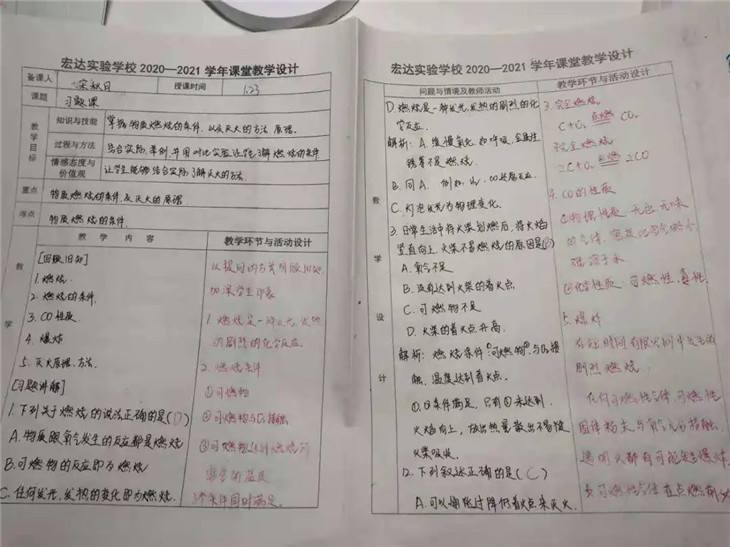 宏达实验学校 2020—2021 学年课堂教学设计
备课人
授课时间
1.23
课题
习题课
教学目标
知识与技能
掌握物质燃烧的条件.以及灭火的方法 原理.
过程与方法
结合实际,举例,并用对比实验让学生了解燃烧的条件
情感态度与价值观
让学生能够结合实际了解灭火的方法.
重点
物质燃烧的条件.及灭火的原理.
难点
物质燃烧的条件.
教 学 内 容
教学环节与活动设计
教
学
[回顾旧知]
1.燃烧.
2.燃烧的条件.
3.CO性质.
4.爆炸
5.灭火原理.方法.
[习题讲解]
1.下列关于燃烧的说法正确的是(D)
A.物质跟氧气发生的反应都是燃烧
B.可燃物的反应即为燃烧
C.任何发光,发热的变化即为燃烧.
以提问的方式回顾旧知.
加深学生印象
1.燃烧是一种发光,发热
的剧烈的化学反应.
2.燃烧条件
①可燃物
②可燃物与O₂接触
③可燃物达到燃烧所
需要的温度
3个条件同时满足.
宏达实验学校 2020—2021 学年课堂教学设计
问题与情境及教师活动
教学环节与活动设计
教
学
设
计
D.燃烧是一种发光,发热的剧烈的化
学反应.
解析: A.缓慢氧化.如呼吸,金属性
锈等不是燃烧.
B.同A.
C.灯泡发光为物理变化.
3.日常生活中将火柴划燃后,将火焰
竖直向上,火柴不易燃烧的原因是(B)
A.氧气不足
B.没有达到火柴的着火点
C.可燃物不足
D.火柴的着火点升高.
解析: 燃烧条件:①可燃物②与O₂接
触,温度达到着火点.
①,②条件满足,只有③未达到.
火焰向上,放出热量散出不易被
火柴吸收.
12.下列叙述正确的是(C)
A.可以用降低着火点来灭火.
3.完全燃烧.
C+O₂ 点燃 CO₂
不完全燃烧
2C+O₂ 点燃 2CO
4.CO的性质
①物理性质:无色,无味
的气体,密度比空气略小
难溶于水
②化学性质:可燃性,毒性.
5.爆炸
在短时间有限空间中发生的
剧烈燃烧.
任何可燃性气体,可燃性
固体粉末与空气充分接触,
遇明火都有可能发生爆炸.